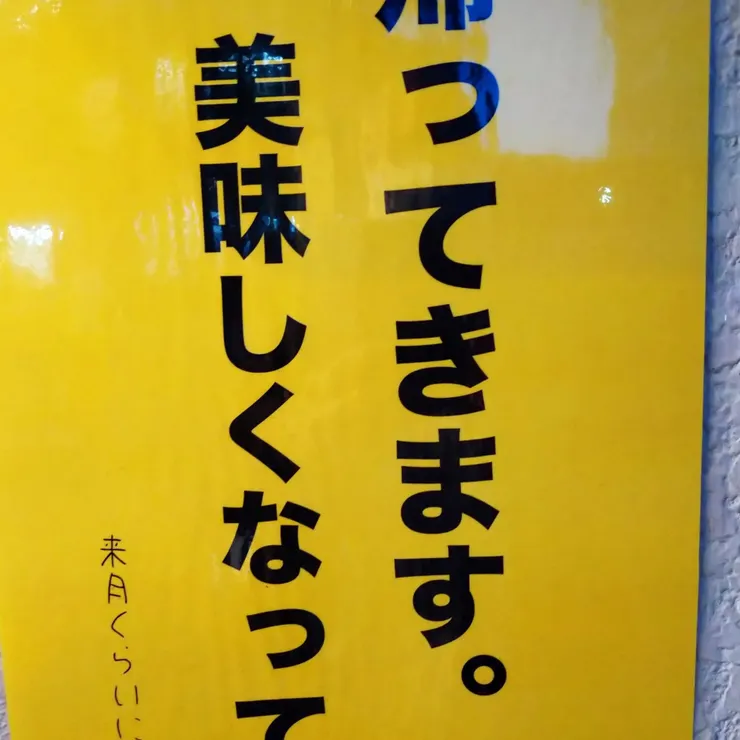 帰ってきます。
美味しくなって
来月くらいに